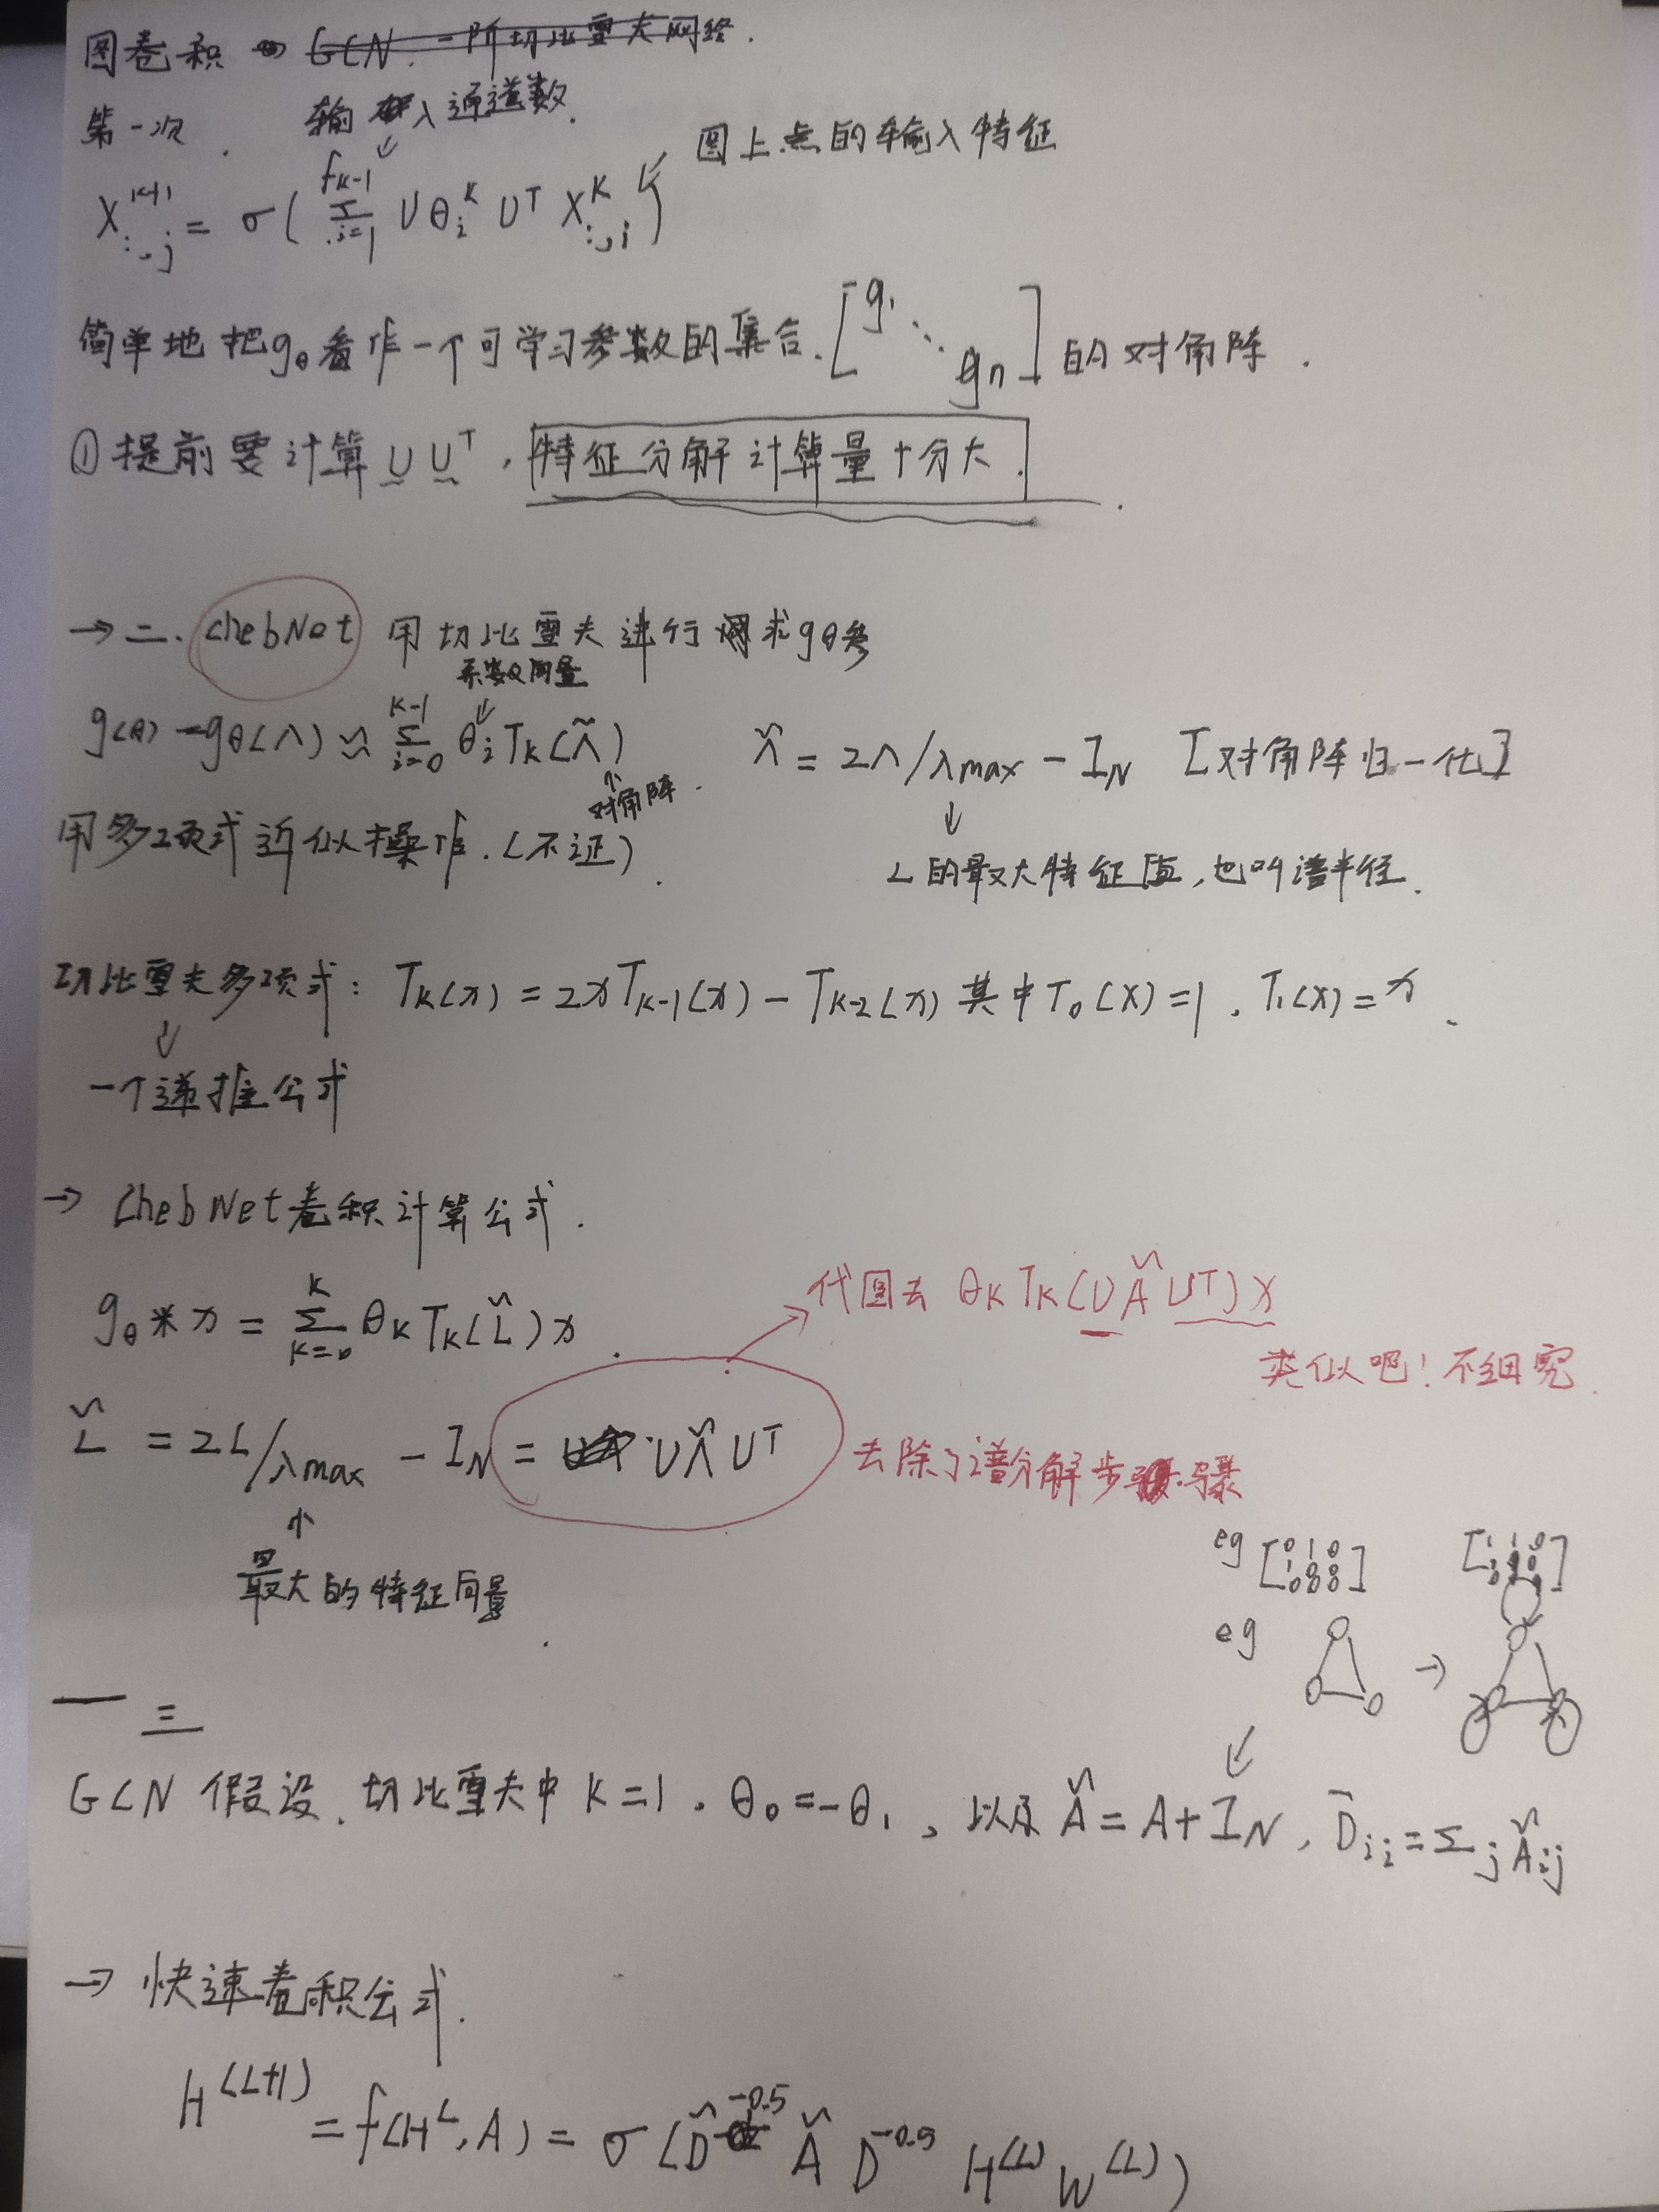 图卷积 → GCN. 一阶切比雪夫网络.
第一次.
输入通道数.
图上点的输入特征
X^{k+1}_{:,j} = σ( Σ_{i=1}^{f_{k-1}} U θ_i^k U^T X^k_{:,i} )
简单地把gθ看作一个可学习参数的集合. [g1 ⋱ gn] 的对角阵.
① 提前要计算 U U^T, 特征分解计算量十分大.
→ 二. ChebNet 用切比雪夫进行求gθ参
系数向量
g(θ) = gθ(Λ) ≈ Σ_{i=0}^{K-1} θ_i T_k(Λ̃)
对角阵.
Λ̃ = 2Λ/λmax − I_N [对角阵归一化]
用多项式近似操作.(不证).
↓
L的最大特征值,也叫谱半径.
切比雪夫多项式: T_k(x) = 2xT_{k-1}(x) − T_{k-2}(x) 其中T_0(x)=1, T_1(x)=x.
↓
一个递推公式
→ ChebNet卷积计算公式.
g_θ * x = Σ_{k=0}^{K} θ_k T_k(L̃) x.
代回去 θ_k T_k(U Λ̃ U^T) x
类似吧! 不细究.
L̃ = 2L/λmax − I_N = UΛ̃U^T
去除了谱分解步骤
↑
最大的特征向量.
eg [0 1 0 1 0 0 0 0 0]
eg
→
三
GCN 假设. 切比雪夫中 K=1. θ_0=−θ_1, 以及 Ã = A+I_N, D̃_{ii} = Σ_j Ã_{ij}
→ 快速卷积公式.
H^{(L+1)} = f(H^L, A) = σ(D̃^{-0.5} Ã D^{-0.5} H^{(L)} W^{(L)})